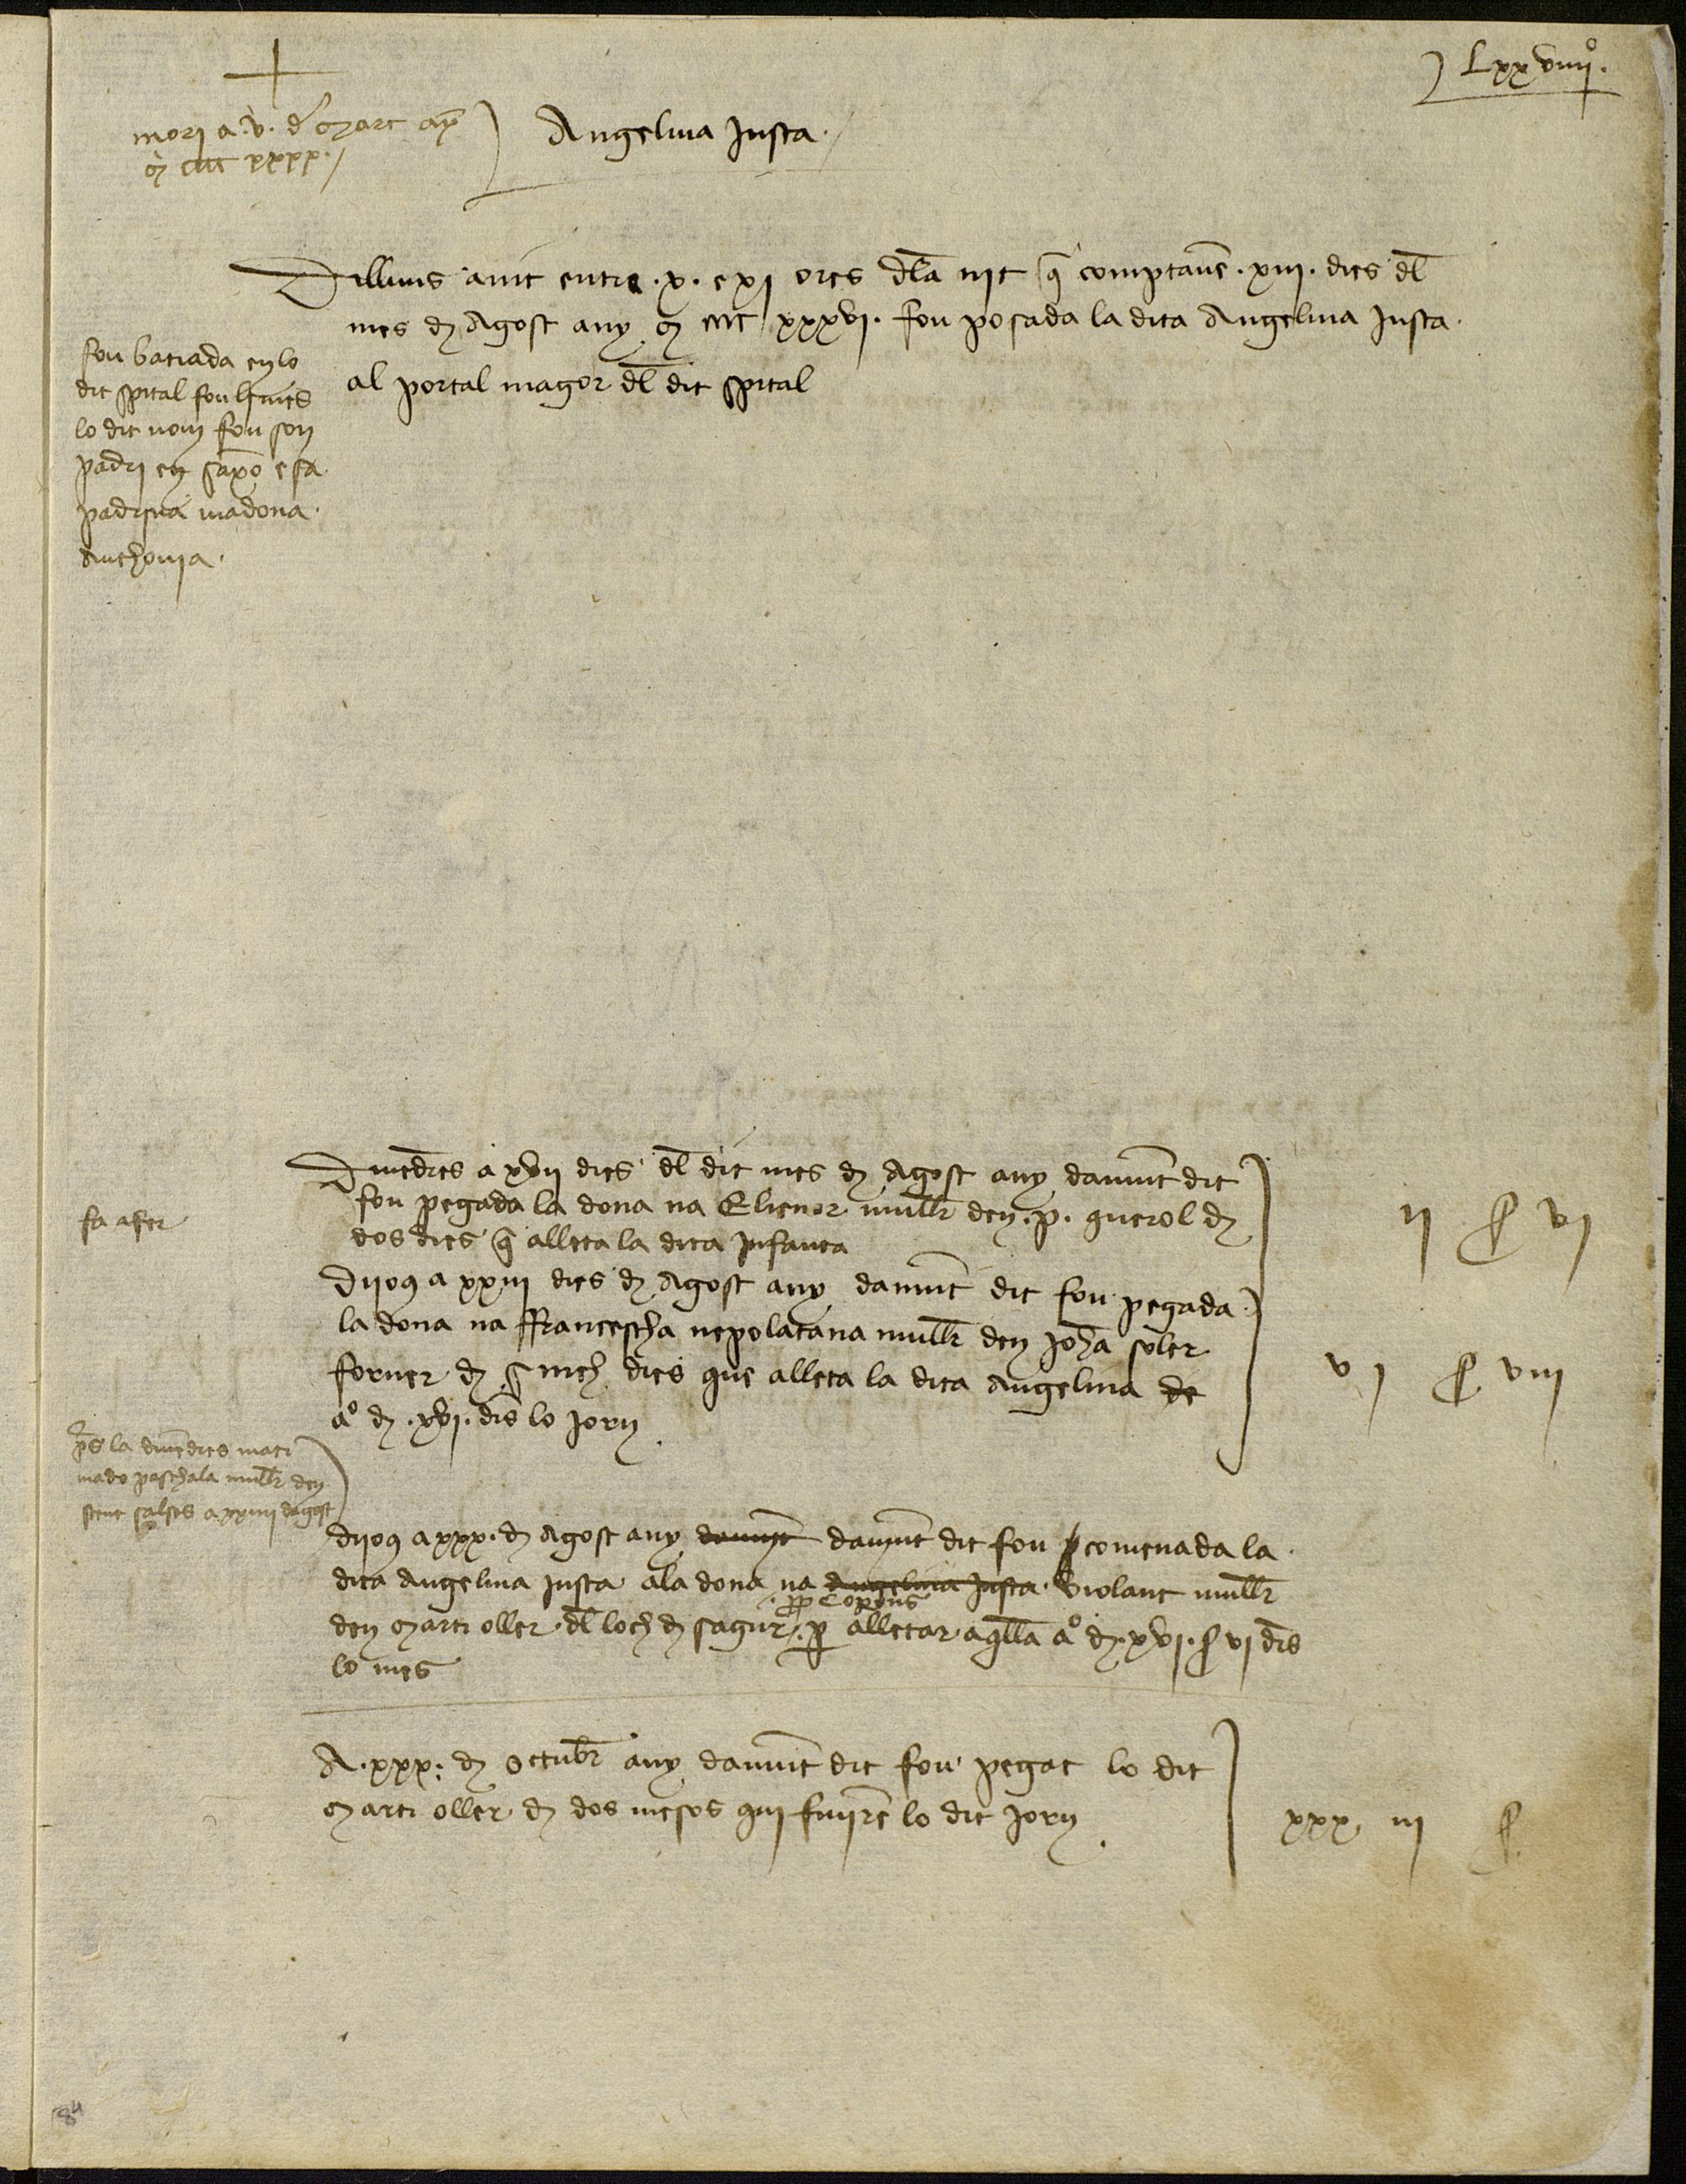 Lxxviiijº.
mori a .v. d març añ
M cccc xxxx.
Angelina Justa.
Dilluns a nit entre .x. e xi ores dla nit q comptauē .xiii. dies dl
mes d Agost any M cccc xxxvi. fou posada la dita Angelina Justa.
al portal magor dl dit spital
fou batiada en lo
dit spital fou li mes
lo dit nom fou son
padri en saxo e sa
padrina madona
anthonia.
Diuēdres a xvii dies dl dit mes d Agost any damūt dit
fou pegada la dona na Elienor mullr den .p. querol d
dos dies q alleta la dita Infanta
ii ſ vi
fa afer
Dijous a xxiii dies d Agost any damūt dit fou pegada
la dona na ffrancescha nepolatana mullr den Johā soler
forner d sinch dies que alleta la dita Angelina de
aº d .xvi. drs lo Jorn
vi ſ viii
ps la diuēdres mati
mado paschala mullr den
steue salses a xxiiii dagost
dijous a xxx. d Agost any damunt damūt dit fou comenada la
dita Angelina Justa ala dona na Angelina Justa. Violant mullr
prop Copons
den Marti oller dl loch d sagur. p alletar aqlla aº d .xvi. ſ vi drs
lo mes
A .xxx. d Octubr any damūt dit fou pegat lo dit
Marti oller d dos mesos qui finirē lo dit Jorn
xxx iii ſ
84